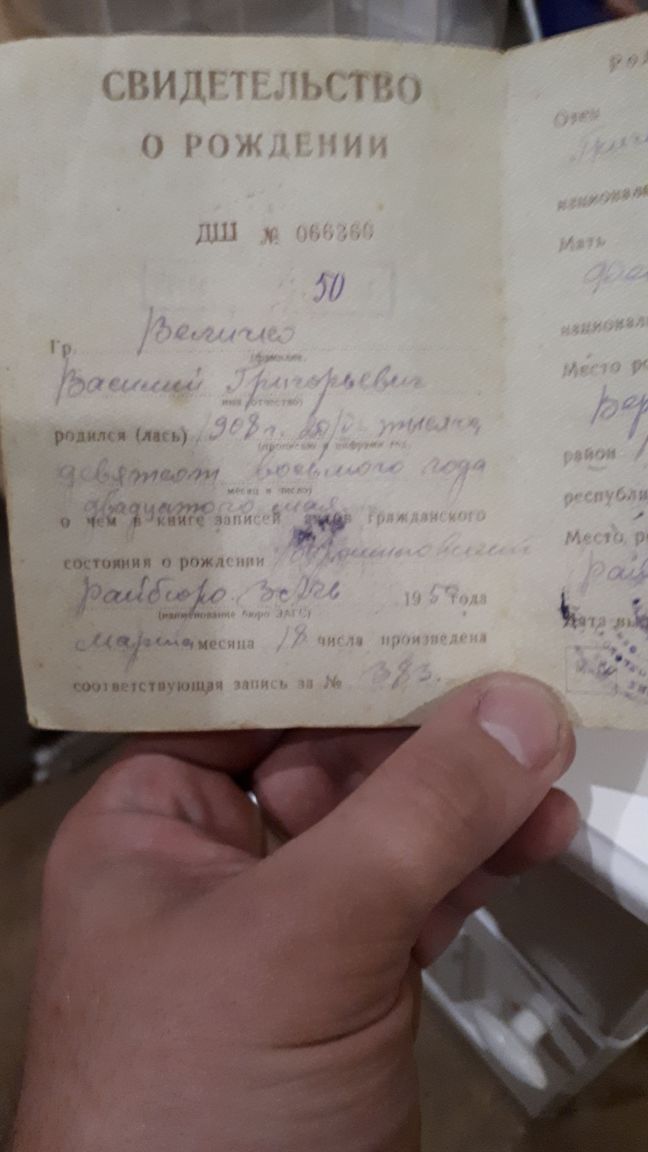 СВИДЕТЕЛЬСТВО
О РОЖДЕНИИ
ДШ № 066360
50
Гр. Величко
(фамилия,
Василий Григорьевич
имя, отчество)
родился (лась) 1908 г. тысяча
(прописью и цифрами год,
девятсот восьмого года
месяц и число)
двадцатого мая
о чем в книге записей актов гражданского
состояния о рождении
Райбюро ЗАГС 1959 года
(наименование бюро ЗАГС)
Марта месяца 18 числа произведена
соответствующая запись за № 383.
Отец
Мать
Место
район
Место
Дата